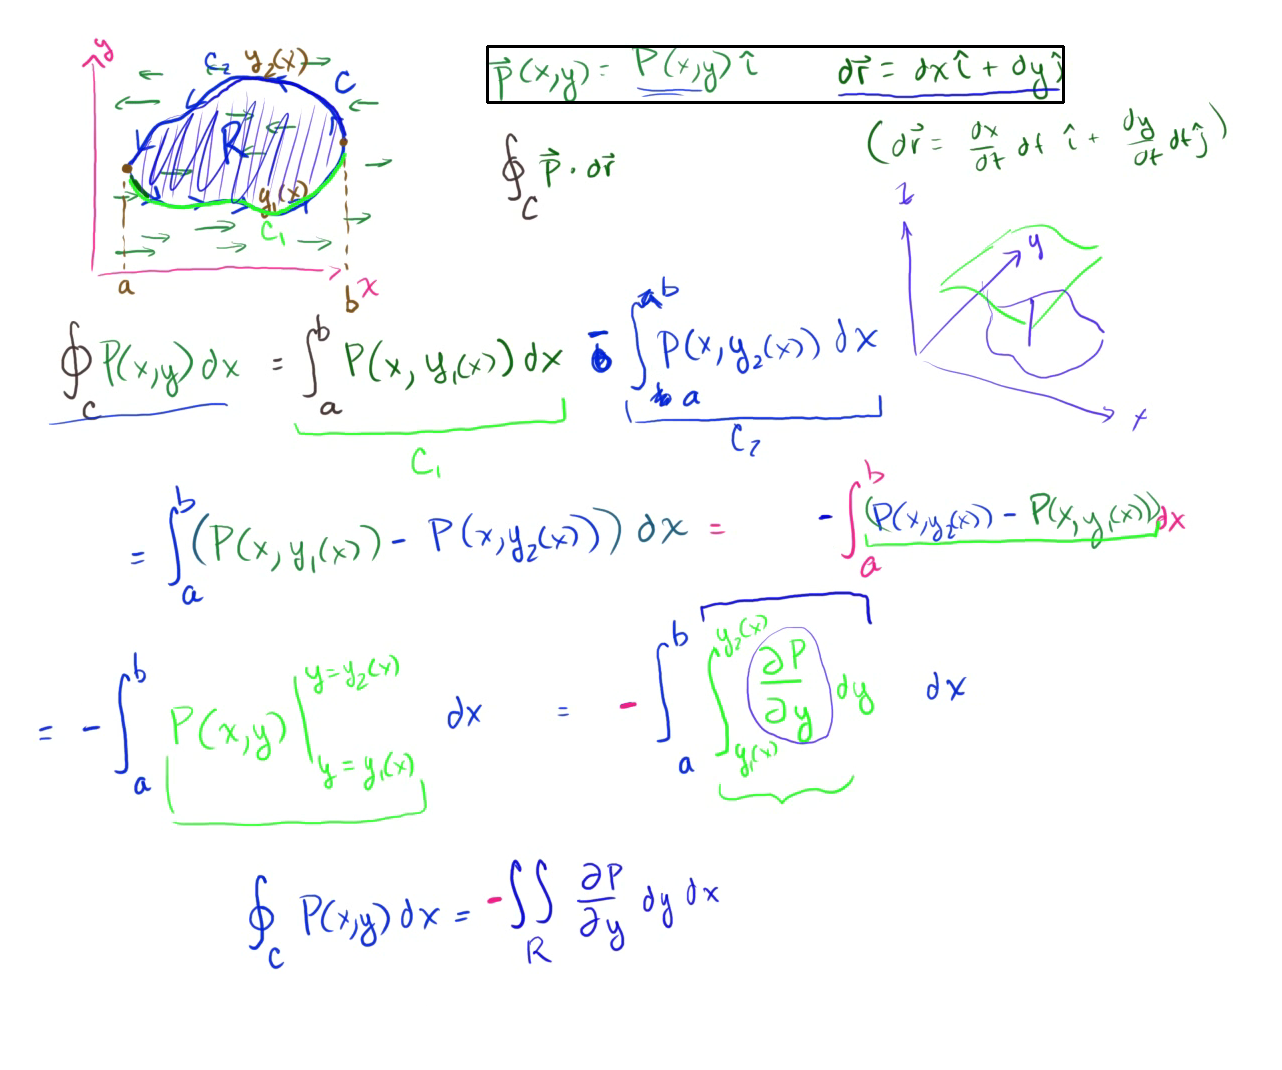 y
C₂ y₂(x)
C
R
y₁(x)
C₁
a b x
P⃗(x,y) = P(x,y) î dr⃗ = dx î + dy ĵ
(dr⃗ = dx/dt dt î + dy/dt dt ĵ)
∮_C P⃗ · dr⃗
z
y
x
∮_C P(x,y) dx = ∫_a^b P(x, y₁(x)) dx - ∫_a^b P(x, y₂(x)) dx
C₁ C₂
= ∫_a^b (P(x, y₁(x)) - P(x, y₂(x))) dx = - ∫_a^b (P(x, y₂(x)) - P(x, y₁(x))) dx
= - ∫_a^b P(x,y) |_{y = y₁(x)}^{y = y₂(x)} dx = - ∫_a^b ∫_{y₁(x)}^{y₂(x)} ∂P/∂y dy dx
∮_C P(x,y) dx = - ∬_R ∂P/∂y dy dx